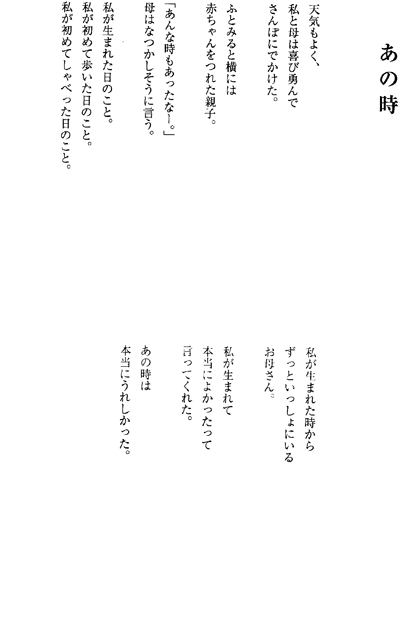 あの時
天気もよく、
私と母は喜び勇んで
さんぽにでかけた。
ふとみると横には
赤ちゃんをつれた親子。
「あんな時もあったなー。」
母はなつかしそうに言う。
私が生まれた日のこと。
私が初めて歩いた日のこと。
私が初めてしゃべった日のこと。
私が生まれた時から
ずっといっしょにいる
お母さん。
私が生まれて
本当によかったって
言ってくれた。
あの時は
本当にうれしかった。